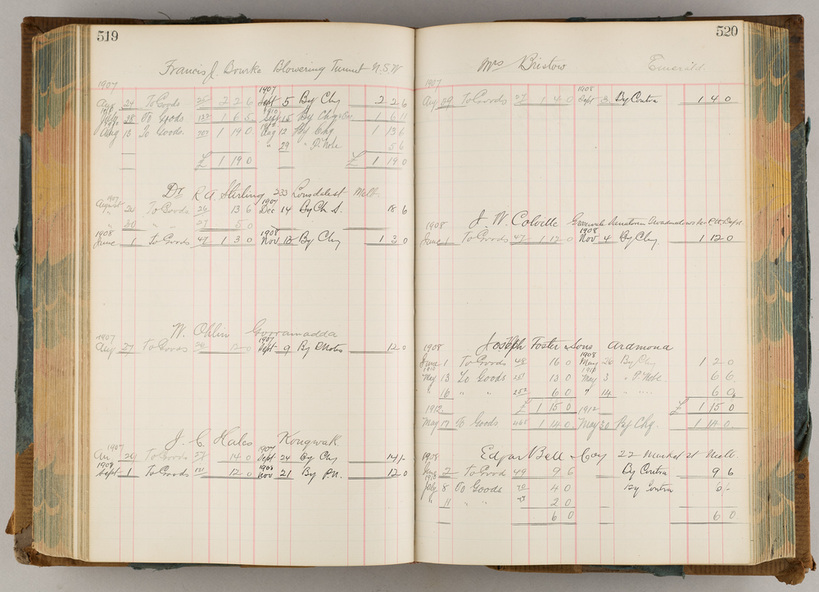 519
Francis J. Bourke Blowering Tumut N.S.W
1907
Aug 24 To Goods 2 2 6 1907 Sept 5 By Chq 2 2 6
28 To Goods 1 6 5 Sept 15 By Chq 1 6
Aug 13 To Goods 1 19 0 Aug 12 By Chq 1 13 6
" 29 " P. Note 5 6
£ 1 19 0 £ 1 19 0
Dr R A Stirling 233 Lonsdale st Melb
August 20 To Goods 13 6 1907 Dec 14 By Ch 18 6
30 " 5 0
1908
June 1 To Goods 49 1 3 0 1908 Nov 13 By Chq 1 3 0
W. Ohlin Gooramadda
1907
Aug 27 To Goods 12 0 1907 Sept 9 By P Notes 12 0
J. C Hales Kongwak
1907
Au 29 To Goods 14 0 1907 Sept 24 By Chq 14/-
1908
Sept 1 To Goods 12 0 1908 Nov 21 By P.N. 12 0
520
Mrs Bristow Emerald
1907
Aug 29 To Goods 1 4 0 1908 Sept 2 By Contra 1 4 0
J. W. Colville
1908
June 1 To Goods 47 1 12 0 1908 Nov 4 By Chq 1 12 0
Joseph Foster & Sons Ardmona
1908
June 1 To Goods 49 16 0 1908 May 20 By Chq 1 2 0
May 13 To Goods 13 0 May 3 " P Note 6 6
" 16 " " 6 0 " 14 " " 6 6
£ 1 15 0 £ 1 15 0
1912 1912
May 17 To Goods 1 14 0 May 30 By Chq. 1 14 0
Edgar Bell & Coy 22 Market st Melb
1908
June 2 To Goods 49 9 6 By Contra 9 6
July 8 To Goods 4 0 By Contra 6/-
" 11 " " 2 0
6 0 6 0